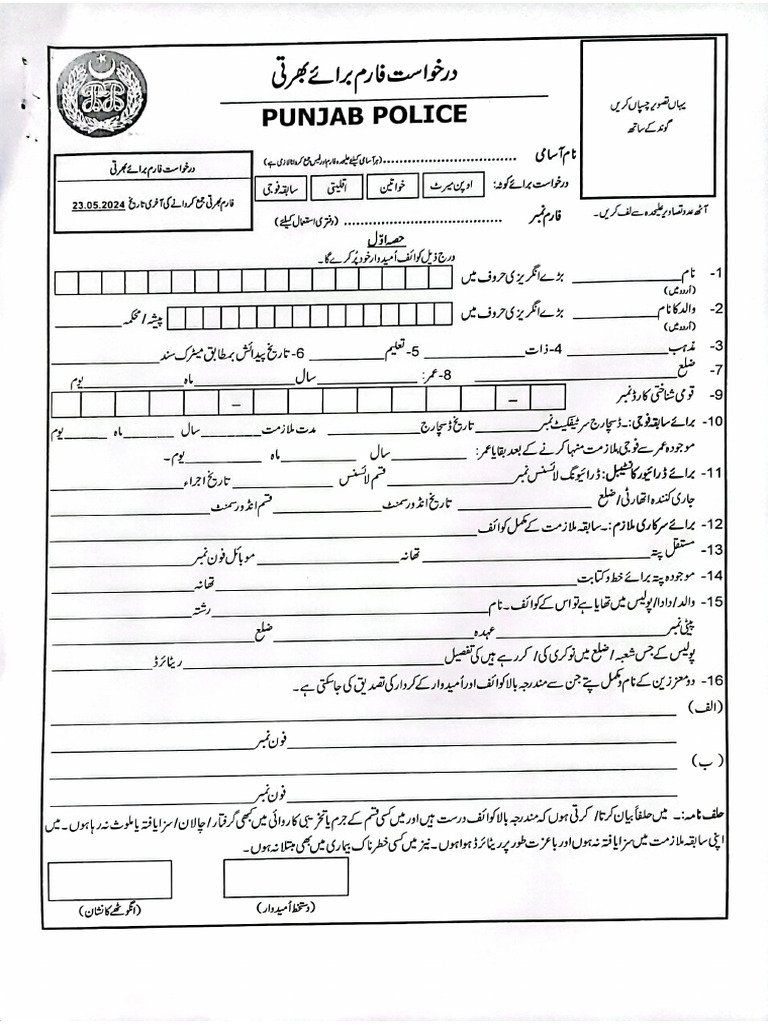 درخواست فارم برائے بھرتی
PUNJAB POLICE
یہاں تصویر چسپاں کریں
گوند کے ساتھ
آٹھ عدد تصاویر علیحدہ سے لف کریں۔
درخواست فارم برائے بھرتی
فارم بھرتی جمع کروانے کی آخری تاریخ 23.05.2024
نام آسامی ........................(ہر آسامی کیلئے علیحدہ فارم اور فیس جمع کروانا لازمی ہے)
درخواست برائے کوٹہ: اوپن میرٹ خواتین اقلیتی سابقہ فوجی
فارم نمبر ........................ (دفتری استعمال کیلئے)
حصہ اوّل
درج ذیل کوائف اُمیدوار خود پُر کرے گا۔
1- نام ____________ بڑے انگریزی حروف میں
(اردو میں)
2- والد کا نام ____________ بڑے انگریزی حروف میں پیشہ / محکمہ ________
(اردو میں)
3- مذہب ________ 4- ذات ________ 5- تعلیم ________ 6- تاریخ پیدائش بمطابق میٹرک سند ________
7- ضلع ____________ 8- عمر: ________ سال ________ ماہ ________ یوم
9- قومی شناختی کارڈ نمبر – –
10- برائے سابقہ فوجی:۔ ڈسچارج سرٹیفکیٹ نمبر ________ تاریخ ڈسچارج ________ مدت ملازمت ________ سال ________ ماہ ________ یوم
موجودہ عمر سے فوجی ملازمت منہا کرنے کے بعد بقایا عمر: ________ سال ________ ماہ ________ یوم۔
11- برائے ڈرائیور کانسٹیبل: ڈرائیونگ لائسنس نمبر ________ قسم لائسنس ________ تاریخ اجراء ________
جاری کنندہ اتھارٹی / ضلع ________ تاریخ انڈورسمنٹ ________ قسم انڈورسمنٹ ________
12- برائے سرکاری ملازم:۔ سابقہ ملازمت کے مکمل کوائف ____________
13- مستقل پتہ ____________ تھانہ ________ موبائل فون نمبر ________
14- موجودہ پتہ برائے خط و کتابت ____________ تھانہ ________
15- والد / دادا / پولیس میں تھا یا ہے تو اس کے کوائف ۔ نام ____________ رشتہ ________
پیٹی نمبر ____________ عہدہ ____________ ضلع ____________
پولیس کے جس شعبہ / ضلع میں نوکری کی / کر رہے ہیں کی تفصیل ____________ ریٹائرڈ ________
16- دو معززین کے نام و مکمل پتے جن سے مندرجہ بالا کوائف اور اُمیدوار کے کردار کی تصدیق کی جا سکتی ہے۔
(الف) ____________
____________ فون نمبر ____________
(ب) ____________
____________ فون نمبر ____________
حلف نامہ:۔ میں حلفاً بیان کرتا / کرتی ہوں کہ مندرجہ بالا کوائف درست ہیں اور میں کسی قسم کے جرم یا تخریبی کاروائی میں کبھی گرفتار / چالان / سزا یافتہ یا ملوث نہ رہا ہوں۔ میں
اپنی سابقہ ملازمت میں سزا یافتہ نہ ہوں اور باعزت طور پر ریٹائرڈ ہوا ہوں۔ نیز میں کسی خطرناک بیماری میں بھی مبتلا نہ ہوں۔
(دستخط اُمیدوار) (انگوٹھے کا نشان)